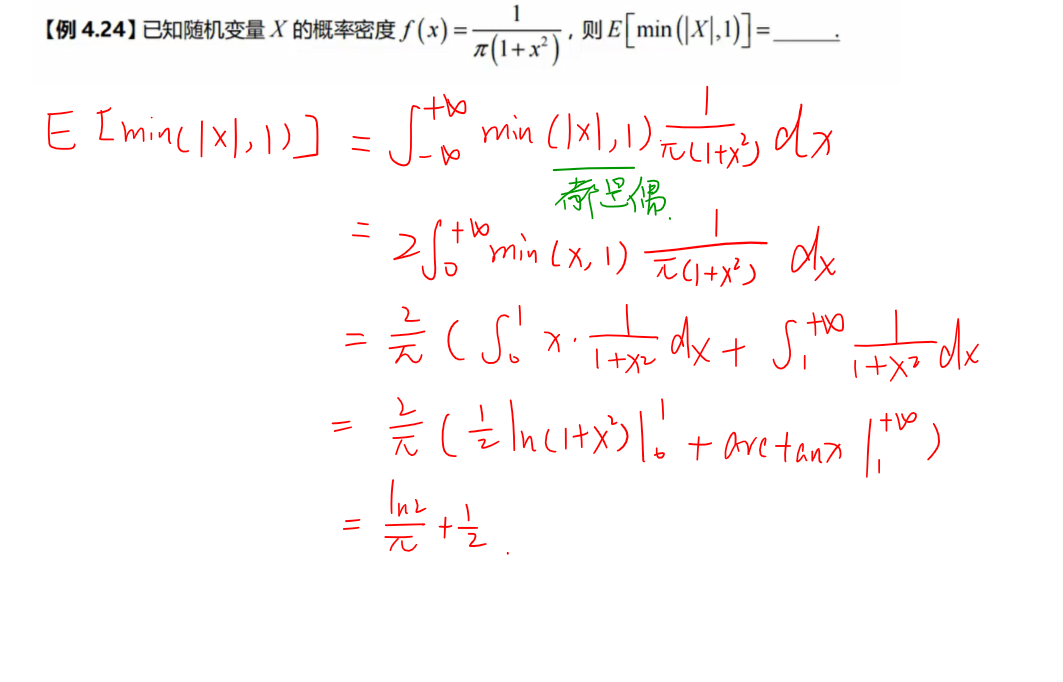 【例 4.24】已知随机变量 X 的概率密度 f(x) = 1/(π(1+x²)), 则 E[min(|X|,1)]=_____.
E [min(|X|,1)] = ∫_{-∞}^{+∞} min(|x|,1) 1/(π(1+x²)) dx
都是偶.
= 2∫_0^{+∞} min(x,1) 1/(π(1+x²)) dx
= 2/π (∫_0^1 x· 1/(1+x²) dx + ∫_1^{+∞} 1/(1+x²) dx
= 2/π (1/2 ln(1+x²)|_0^1 + arctanx |_1^{+∞})
= ln2/π + 1/2 .